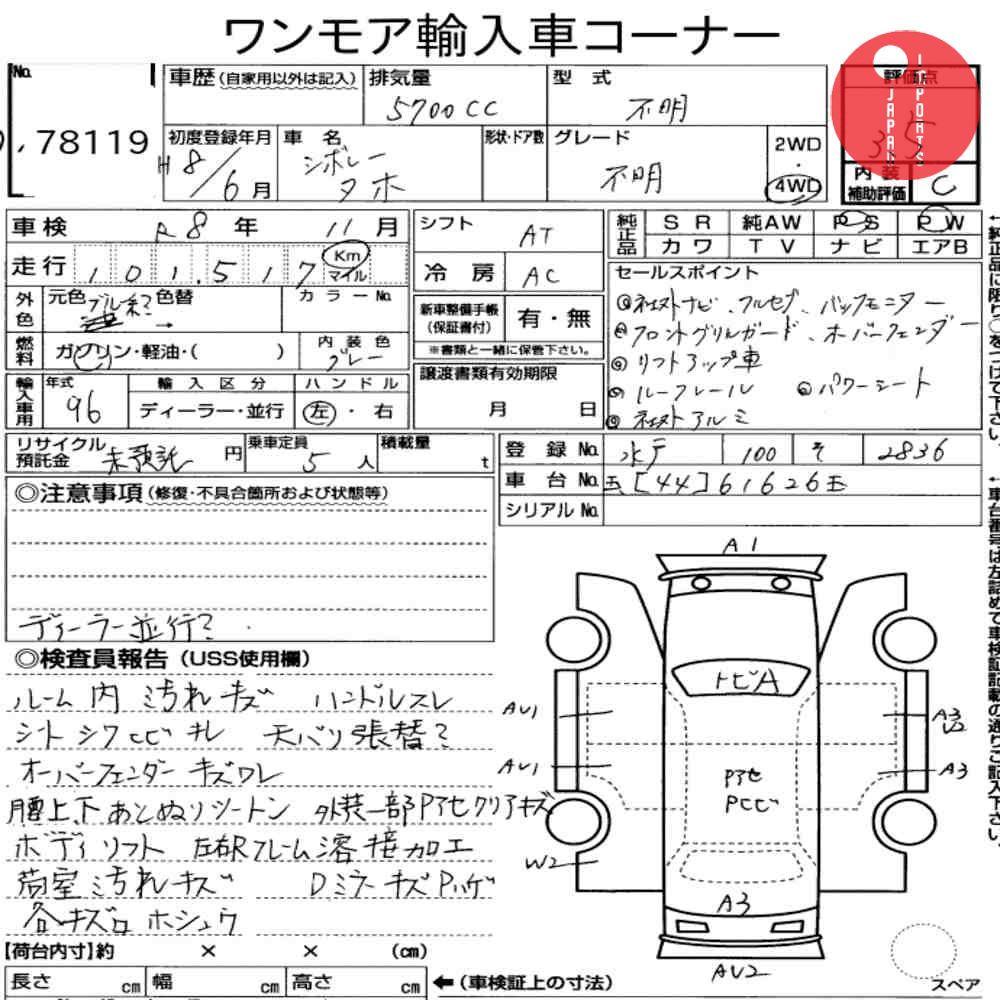 ワンモア輸入車コーナー
No. 78119
車歴(自家用以外は記入) 排気量 5700CC 型式 不明
評価点 3.5
JAPAN IMPORTS
初度登録年月 H8/6月 車名 シボレー タホ 形状・ドア数 グレード 不明 2WD・4WD
内装補助評価 C
車検 R8年 11月 シフト AT
純正品 SR 純AW PS PW
カワ TV ナビ エアB
走行 101,517 Km マイル 冷房 AC
セールスポイント
外色 元色 色替 カラーNo.
新車整備手帳(保証書付) 有・無
※書類と一緒に保管下さい。
◎社外ナビ、フルセグ、バックモニター
◎フロントグリルガード、オーバーフェンダー
◎リフトアップ車
◎ルーフレール ◎パワーシート
◎社外アルミ
燃料 ガソリン・軽油・( ) 内装色 グレー
輸入車用 年式 96 輸入区分 ディーラー・並行 ハンドル 左・右
譲渡書類有効期限
月 日
リサイクル預託金 未預託 円 乗車定員 5人 積載量 t
登録No. 水戸 100 そ 2836
車台No. 玉[44]61626玉
シリアルNo.
◎注意事項(修復・不具合箇所および状態等)
ディーラー並行?
◎検査員報告(USS使用欄)
ルーム内汚れキズ ハンドルスレ
シートシワコゲキレ 天バリ張替?
オーバーフェンダーキズワレ
腰上下あとぬりツートン 外装一部Pアセクリアキズ
ボディリフト 左右Rフレーム溶接加工
荷室汚れキズ DミラーキズPハゲ
各キズロホシュウ
A1
トビA
AU1
AU1
W2
Pアセ
PCビ
A3
U2
A3
A3
AU2
スペア
【荷台内寸】約 × × (cm)
長さ cm 幅 cm 高さ cm ←(車検証上の寸法)
←純正品に限り○をつけて下さい。
←車台番号は左詰めて車検証記載の通りご記入下さい。